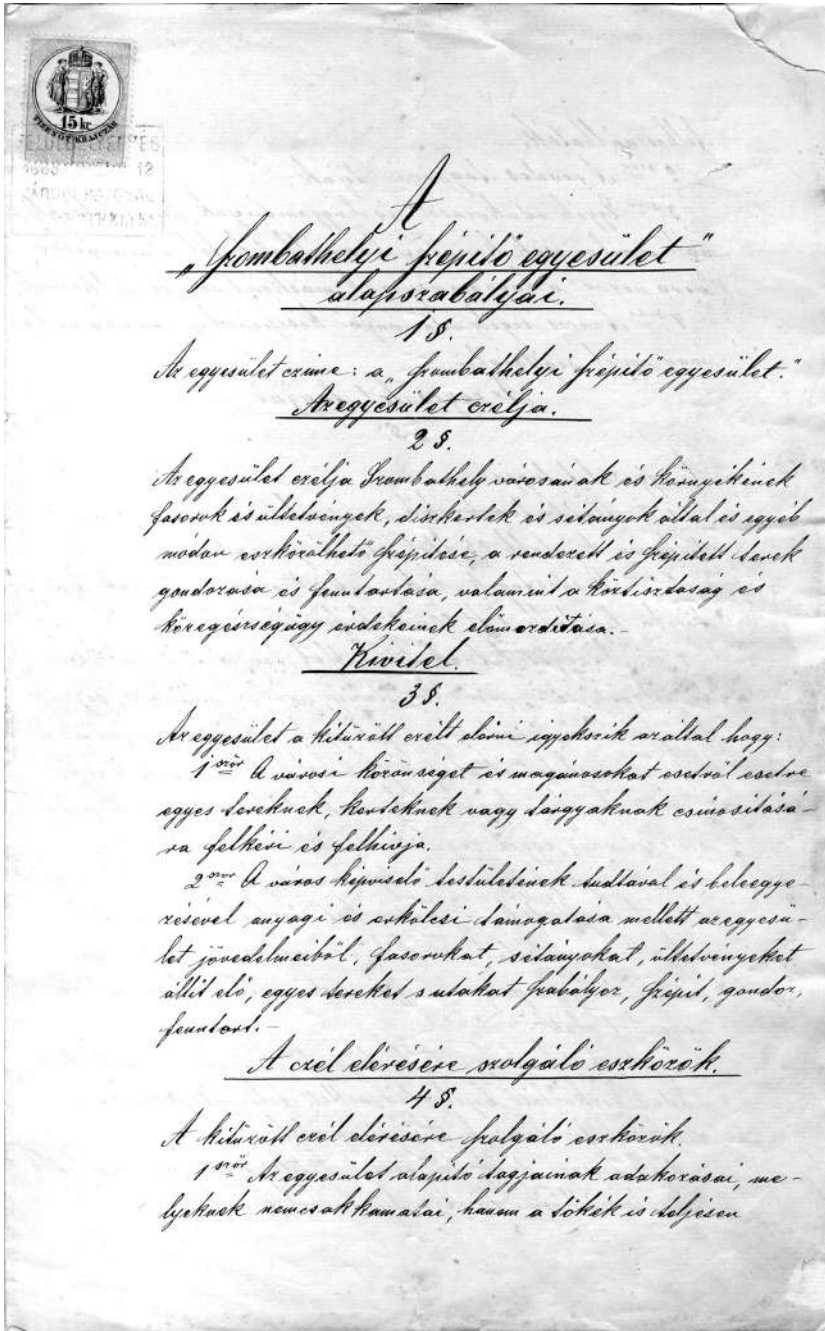 15 kr.
TIZENÖT KRAJCZÁR
A
„Szombathelyi szépitő egyesület"
alapszabályai.
1 §.
Az egyesület czime: a „Szombathelyi szépitő egyesület."
Az egyesület czélja.
2 §.
Az egyesület czélja Szombathely városának és környékének
fasorok és ültetvények, diszkertek és sétányok által és egyéb
módon eszközölhető szépitése, a rendezett és szépitett terek
gondozása és fenntartása, valamint a köztisztaság és
közegészségügy érdekeinek előmozditása.-
Kivitel.
3 §.
Az egyesület a kitüzött czélt elérni igyekszik azáltal hogy:
1ször A városi közönséget és magánosokat esetről esetre
egyes tereknek, kerteknek vagy tárgyaknak csinositásá-
ra felkéri és felhivja.
2szor A város képviselő testületének tudtával és beleegye-
zésével anyagi és erkölcsi támogatása mellett az egyesü-
let jövedelmeiből, fasorokat, sétányokat, ültetvényeket
állit elő, egyes tereket s utakat szabályoz, szépit, gondoz,
fenntart.-
A czél elérésére szolgáló eszközök.
4 §.
A kitüzött czél elérésére szolgáló eszközök.
1ször Az egyesület alapitó tagjainak adakozásai, me-
lyeknek nemcsak kamatai, hanem a tőkék is teljesen